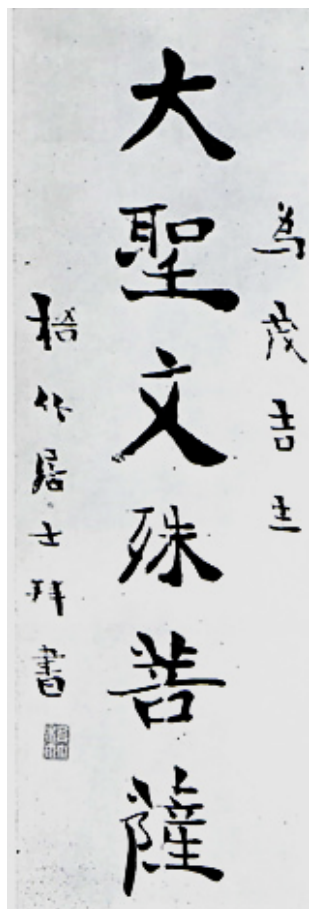 為茂吉生
大聖文殊菩薩
梧竹居士拜書